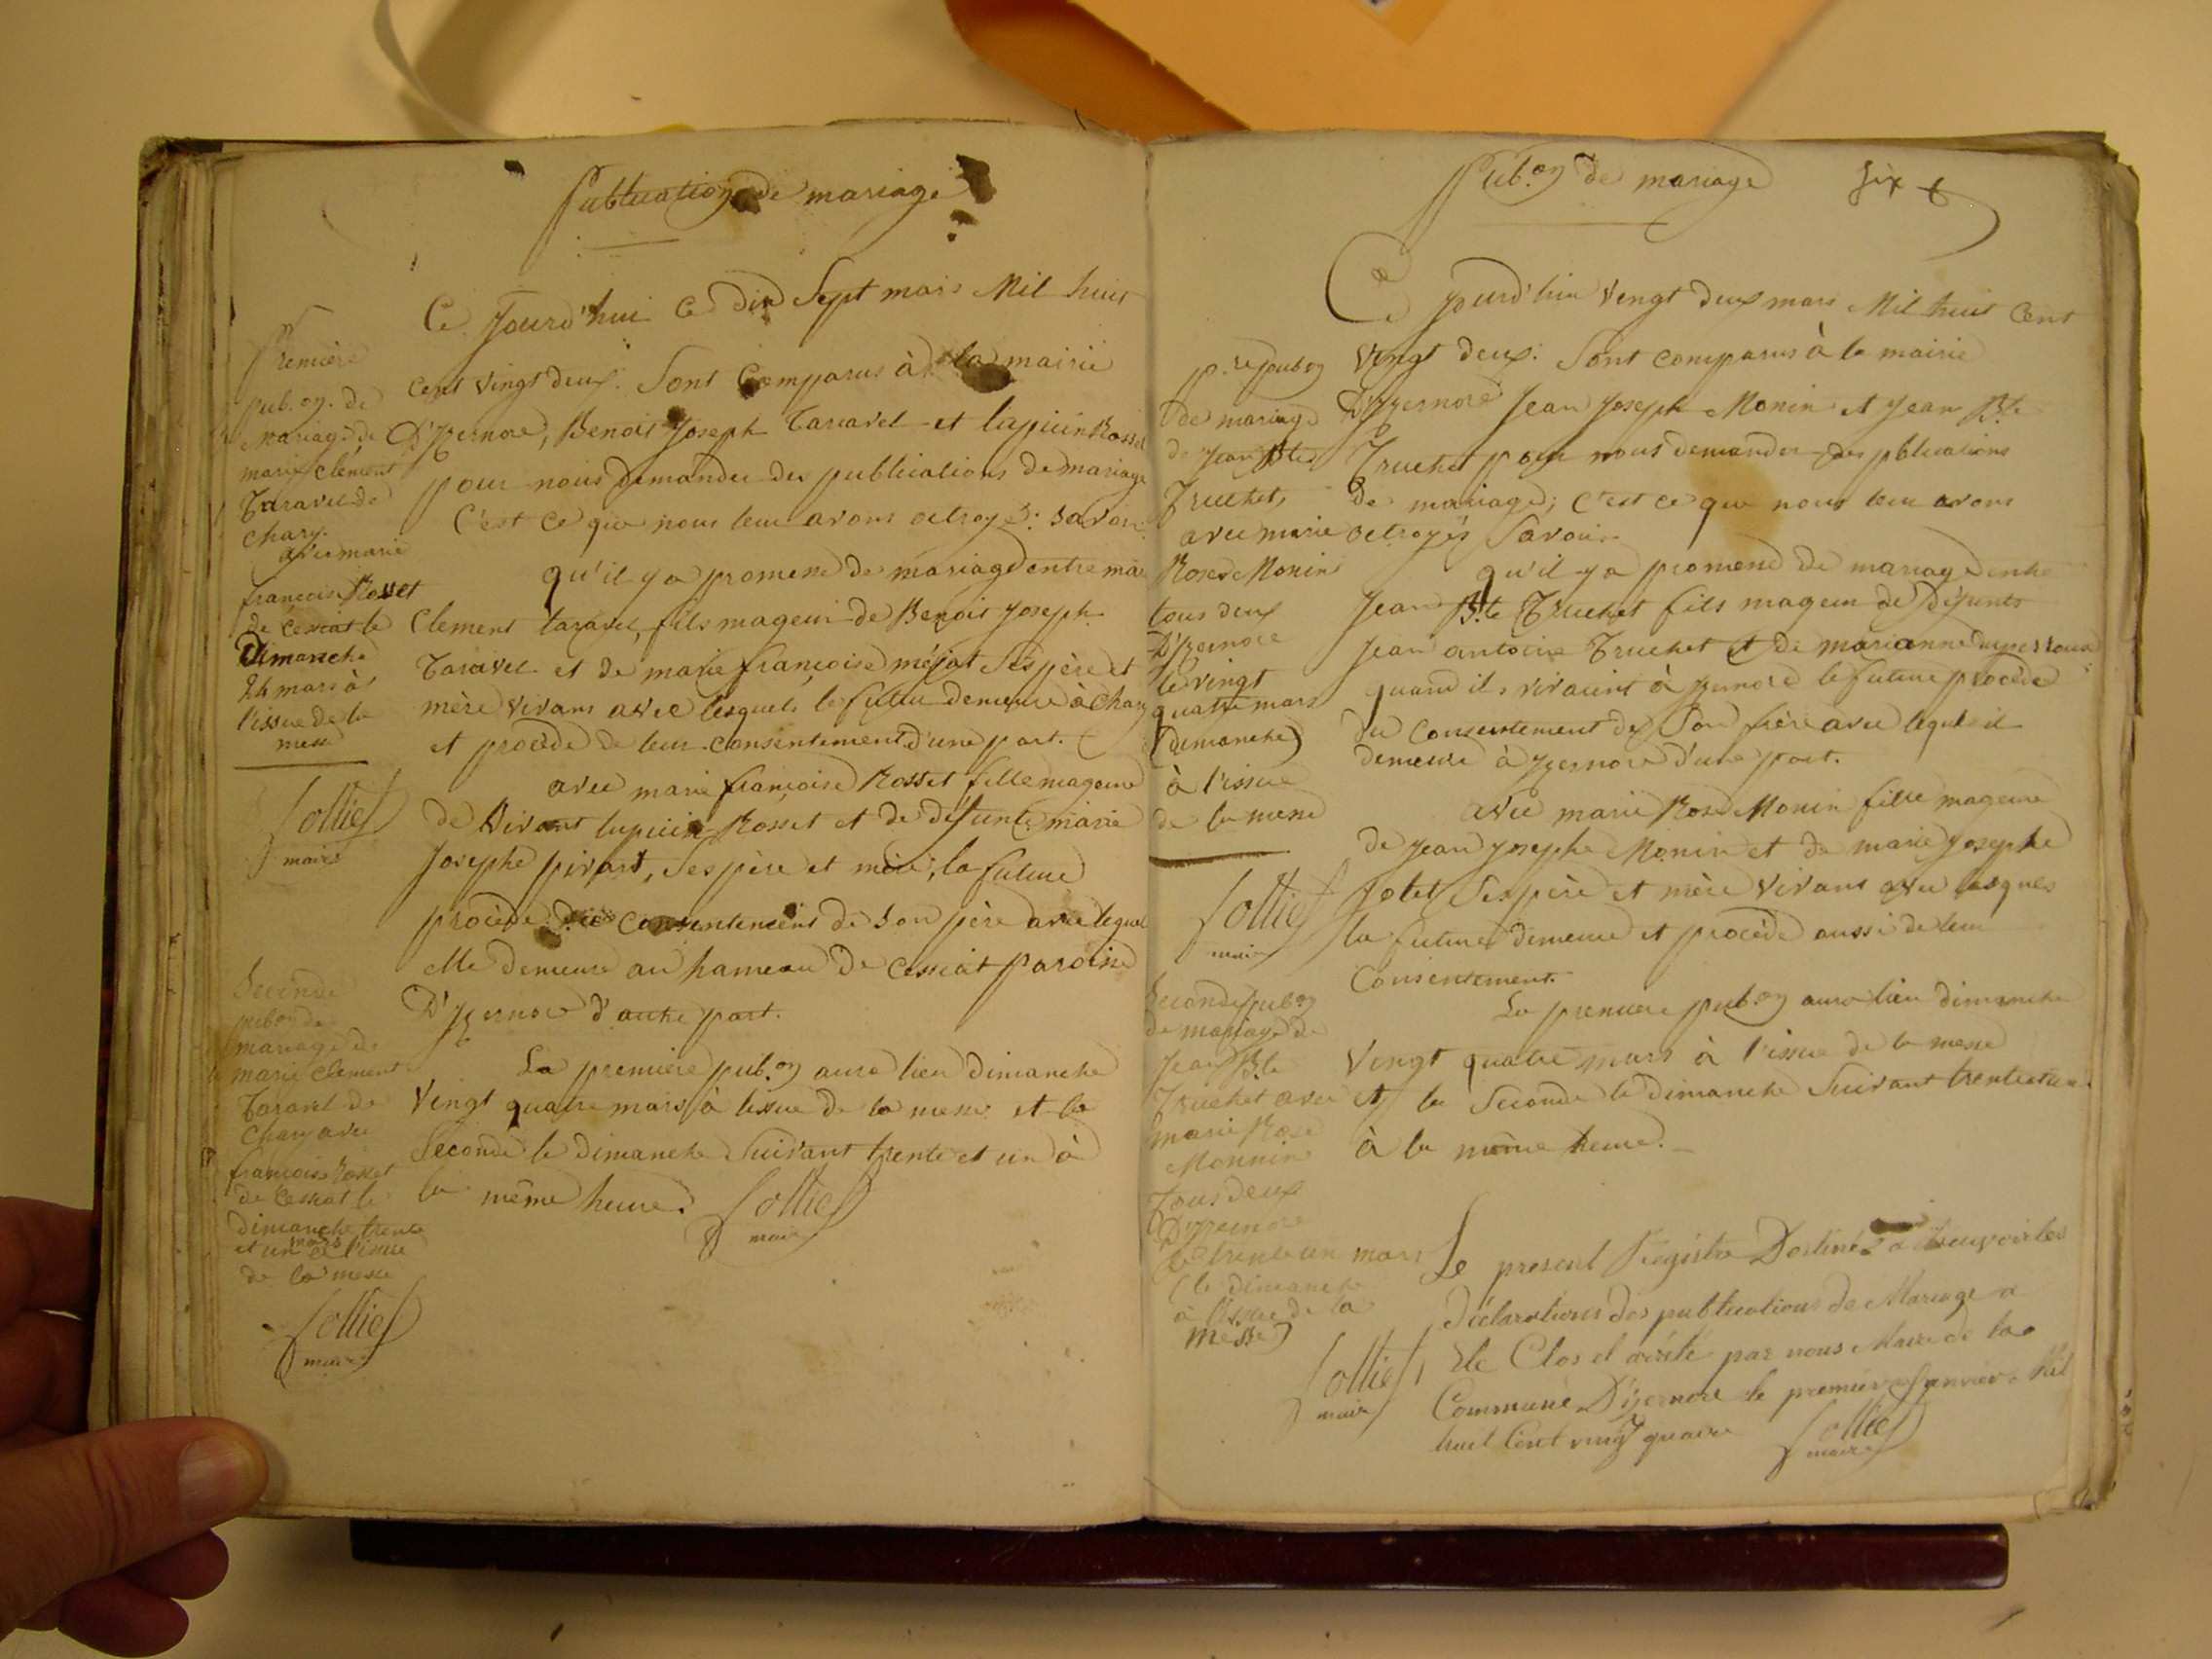 Publication de mariage
Première
pub.on de
Mariage de
marie clément
Taravel de
Chary.
avec marie
françoise Rosset
de Cessiat le
Dimanche
24 mars à
l'issue de la
messe
Sottier
maire
Seconde
pub.on de
mariage de
marie Clement
Taravel de
Chary avec
françoise Rosset
de Cessiat le
dimanche trente
et un mars à l'issue
de la messe
Sottier
maire
Ce Jourd'hui Ce dix Sept mars Mil huit
Cent vingt deux. Sont Comparus à la mairie
D'Yzernore, Benoit Joseph Taravel et lupicin Rosset
pour nous demander des publications de mariage
C'est Ce que nous leur avons octroyés: Savoir
qu'il y a promesse de mariage entre mie
Clement taravel, fils mageur de Benoit Joseph
Taravel et de marie françoise méjat Ses père et
mère vivans avec lesquels le futur demeure à Chary
et procède de leur Consentement d'une part.
avec marie françoise Rosset fille mageure
de Vivant lupicin Rosset et de défunte marie
Josephe pivart, Ses père et mère, la future
procède du Consentement de Son père avec lequel
elle demeure au hameau De Cessiat paroisse
D'Yzernore d'autre part.
La première pub.on aura lieu dimanche
Vingt quatre mars à lissue de la messe et la
Seconde le dimanche Suivant trente et un à
la même heure. Sottier
maire
Pub.on de mariage Six 6
p.re pub.on
de mariage
de Jean Bte
Truchet,
avec marie
Rose Monin
tous deux
D'Yzernore
le vingt
quatre mars
(dimanche)
à l'issue
de la messe
Sottier
maire
Seconde pub.on
de mariage de
Jean Bte
Truchet avec
marie Rose
Monnin
Tous deux
D'yzernore
le trente un mars
(le dimanche
à l'issue de la
messe)
Sottier
maire
Ce Jourd'hui Vingt deux mars Mil huit Cent
Vingt deux. Sont comparus à la mairie
D'Yzernore Jean Joseph Monin et Jean Bte
Truchet pour nous demander des pblications
de mariage; C'est ce que nous leur avons
octroyés Savoir.
qu'il y a promesse de mariage entre
Jean Bte Truchet fils mageur de Défunts
Jean antoine Truchet et de marianne
quand ils vivaient à yzernore le future procède
du Consentement de Son frère avec lequel il
demeure à yzernore d'une part.
avec marie Rose Monin fille mageure
de Jean Josephe Monin et de marie Josephe
Jolet Ses père et mère vivans avec lesquels
la future demeure et procède aussi de leur
Consentement.
La premiere pub.on aura lieu dimanche
Vingt quatre mars à l'issue de la messe
et la Seconde le dimanche Suivant trente et un
à la même heure.
Le present Registre Destiné à Recevoir les
Déclarations des publications de Mariage a
Ete Clos et arrêté par nous Maire de la
Commune D'izernore le premier Janvier Mil
huit Cent vingt quatre Sottier
maire